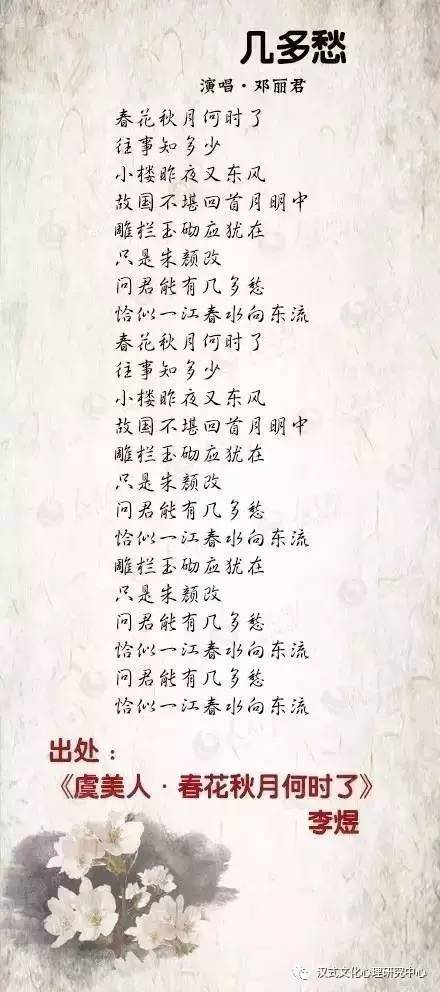 几多愁
演唱·邓丽君
春花秋月何时了
往事知多少
小楼昨夜又东风
故国不堪回首月明中
雕栏玉砌应犹在
只是朱颜改
问君能有几多愁
恰似一江春水向东流
春花秋月何时了
往事知多少
小楼昨夜又东风
故国不堪回首月明中
雕栏玉砌应犹在
只是朱颜改
问君能有几多愁
恰似一江春水向东流
雕栏玉砌应犹在
只是朱颜改
问君能有几多愁
恰似一江春水向东流
问君能有几多愁
恰似一江春水向东流
出处：
《虞美人·春花秋月何时了》
李煜
汉式文化心理研究中心